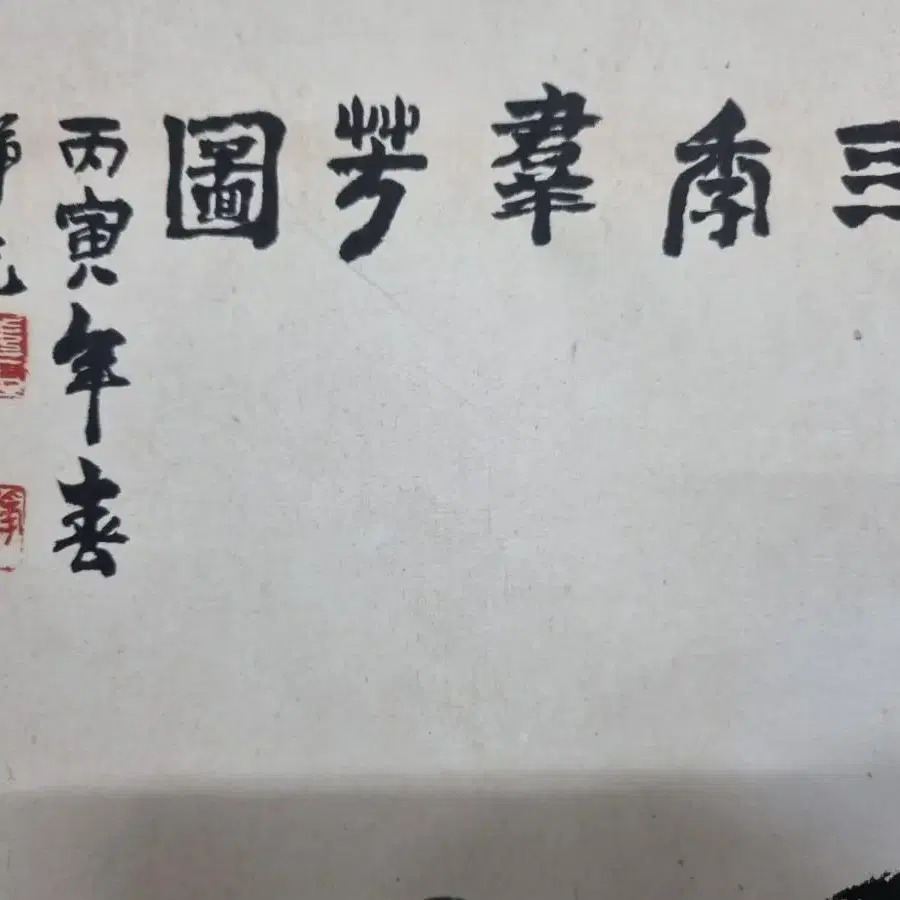 三季羣芳圖
丙寅年春